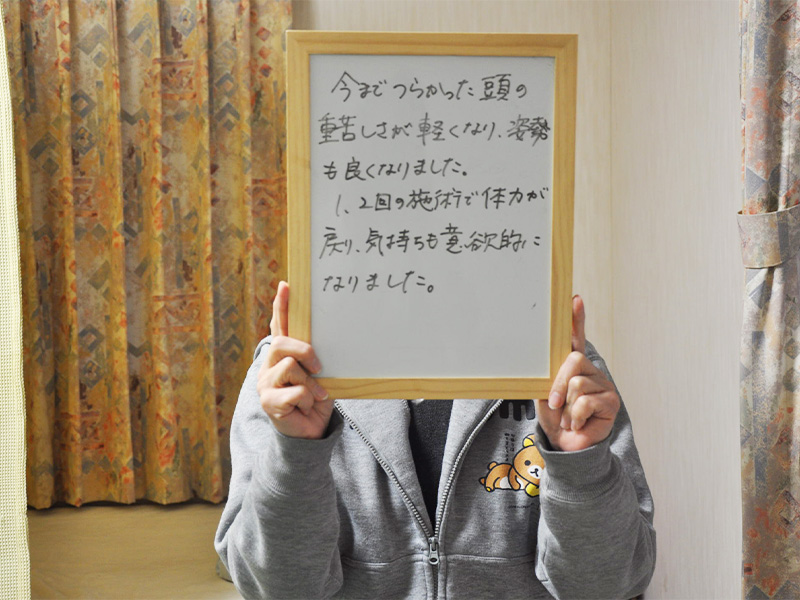 今までつらかった頭の
重苦しさが軽くなり、姿勢
も良くなりました。
1、2回の施術で体力が
戻り、気持ちも意欲的に
なりました。